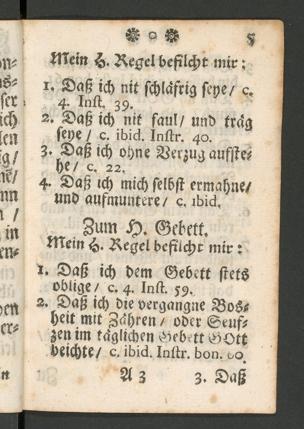 5
Mein H. Regel befilcht mir:
1. Daß ich nit schläfrig seye / c.
4. Inst. 39.
2. Daß ich nit faul / und träg
seye / c. ibid. Instr. 40.
3. Daß ich ohne Verzug aufste-
he / c. 22.
4. Daß ich mich selbst ermahne /
und aufmuntere / c. ibid.
Zum H. Gebett.
Mein H. Regel befilcht mir:
1. Daß ich dem Gebett stets
oblige / c. 4. Inst. 59.
2. Daß ich die vergangne Bos-
heit mit Zähren / oder Seuf-
zen im täglichen Gebett GOtt
beichte / c. ibid. Instr. bon. 60.
A 3
3. Daß